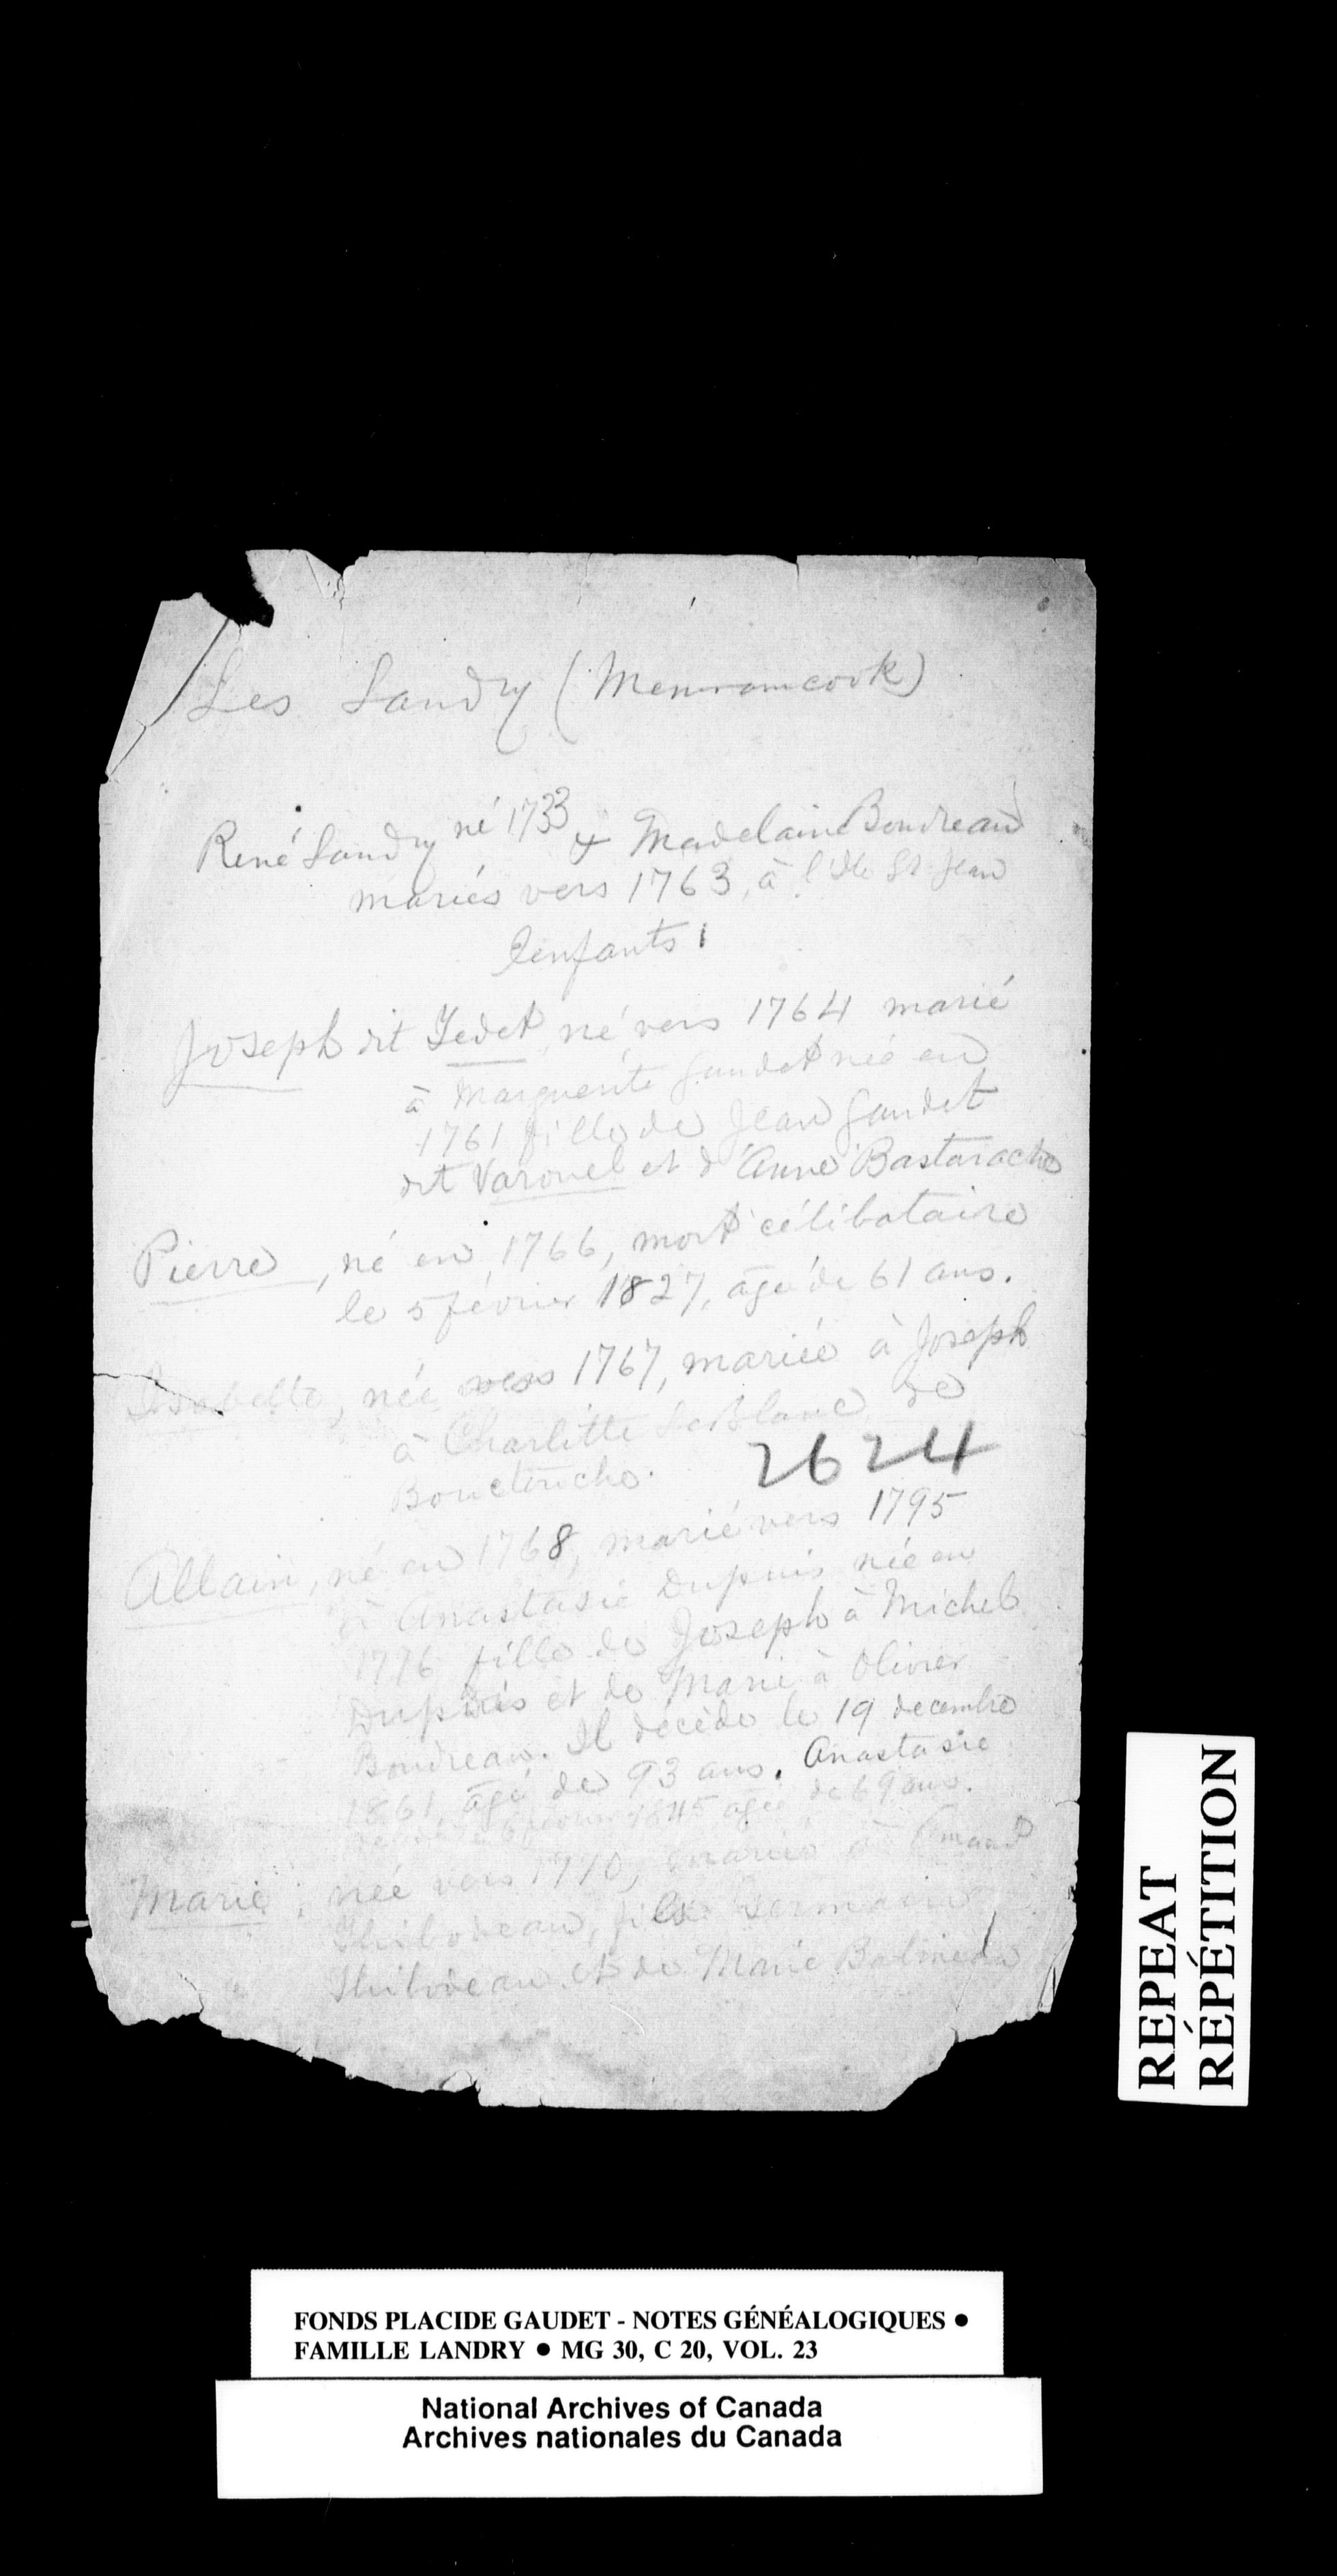 Les Landry (Memramcook)
René Landry né 1733 & Madelaine Boudreau
mariés vers 1763, à l'Ile St-Jean
enfants:
Joseph dit Zedet, né vers 1764 marié
à Marguerite Gaudet née en
1761 fille de Jean Gaudet
dit Varouel et d'Anne Bastarache
Pierre, né en 1766, mort célibataire
le 5 février 1827, âgé de 61 ans.
Isabelle, née vers 1767, mariée à Joseph
à Charlitte LeBlanc de
Bouctouche.
2624
Allain, né en 1768, marié vers 1795
à Anastasie Dupuis née en
1776 fille de Joseph à Michel
Dupuis et de Marie à Olivier
Boudreau. Il décède le 19 decembre
1861, âgé de 93 ans. Anastasie
février 1845 agée de 69 ans.
Marie, née vers 1770, mariée à Amand
Thibodeau, fils Germain
Thibodeau et de Marie
REPEAT
RÉPÉTITION
FONDS PLACIDE GAUDET - NOTES GÉNÉALOGIQUES ●
FAMILLE LANDRY ● MG 30, C 20, VOL. 23
National Archives of Canada
Archives nationales du Canada